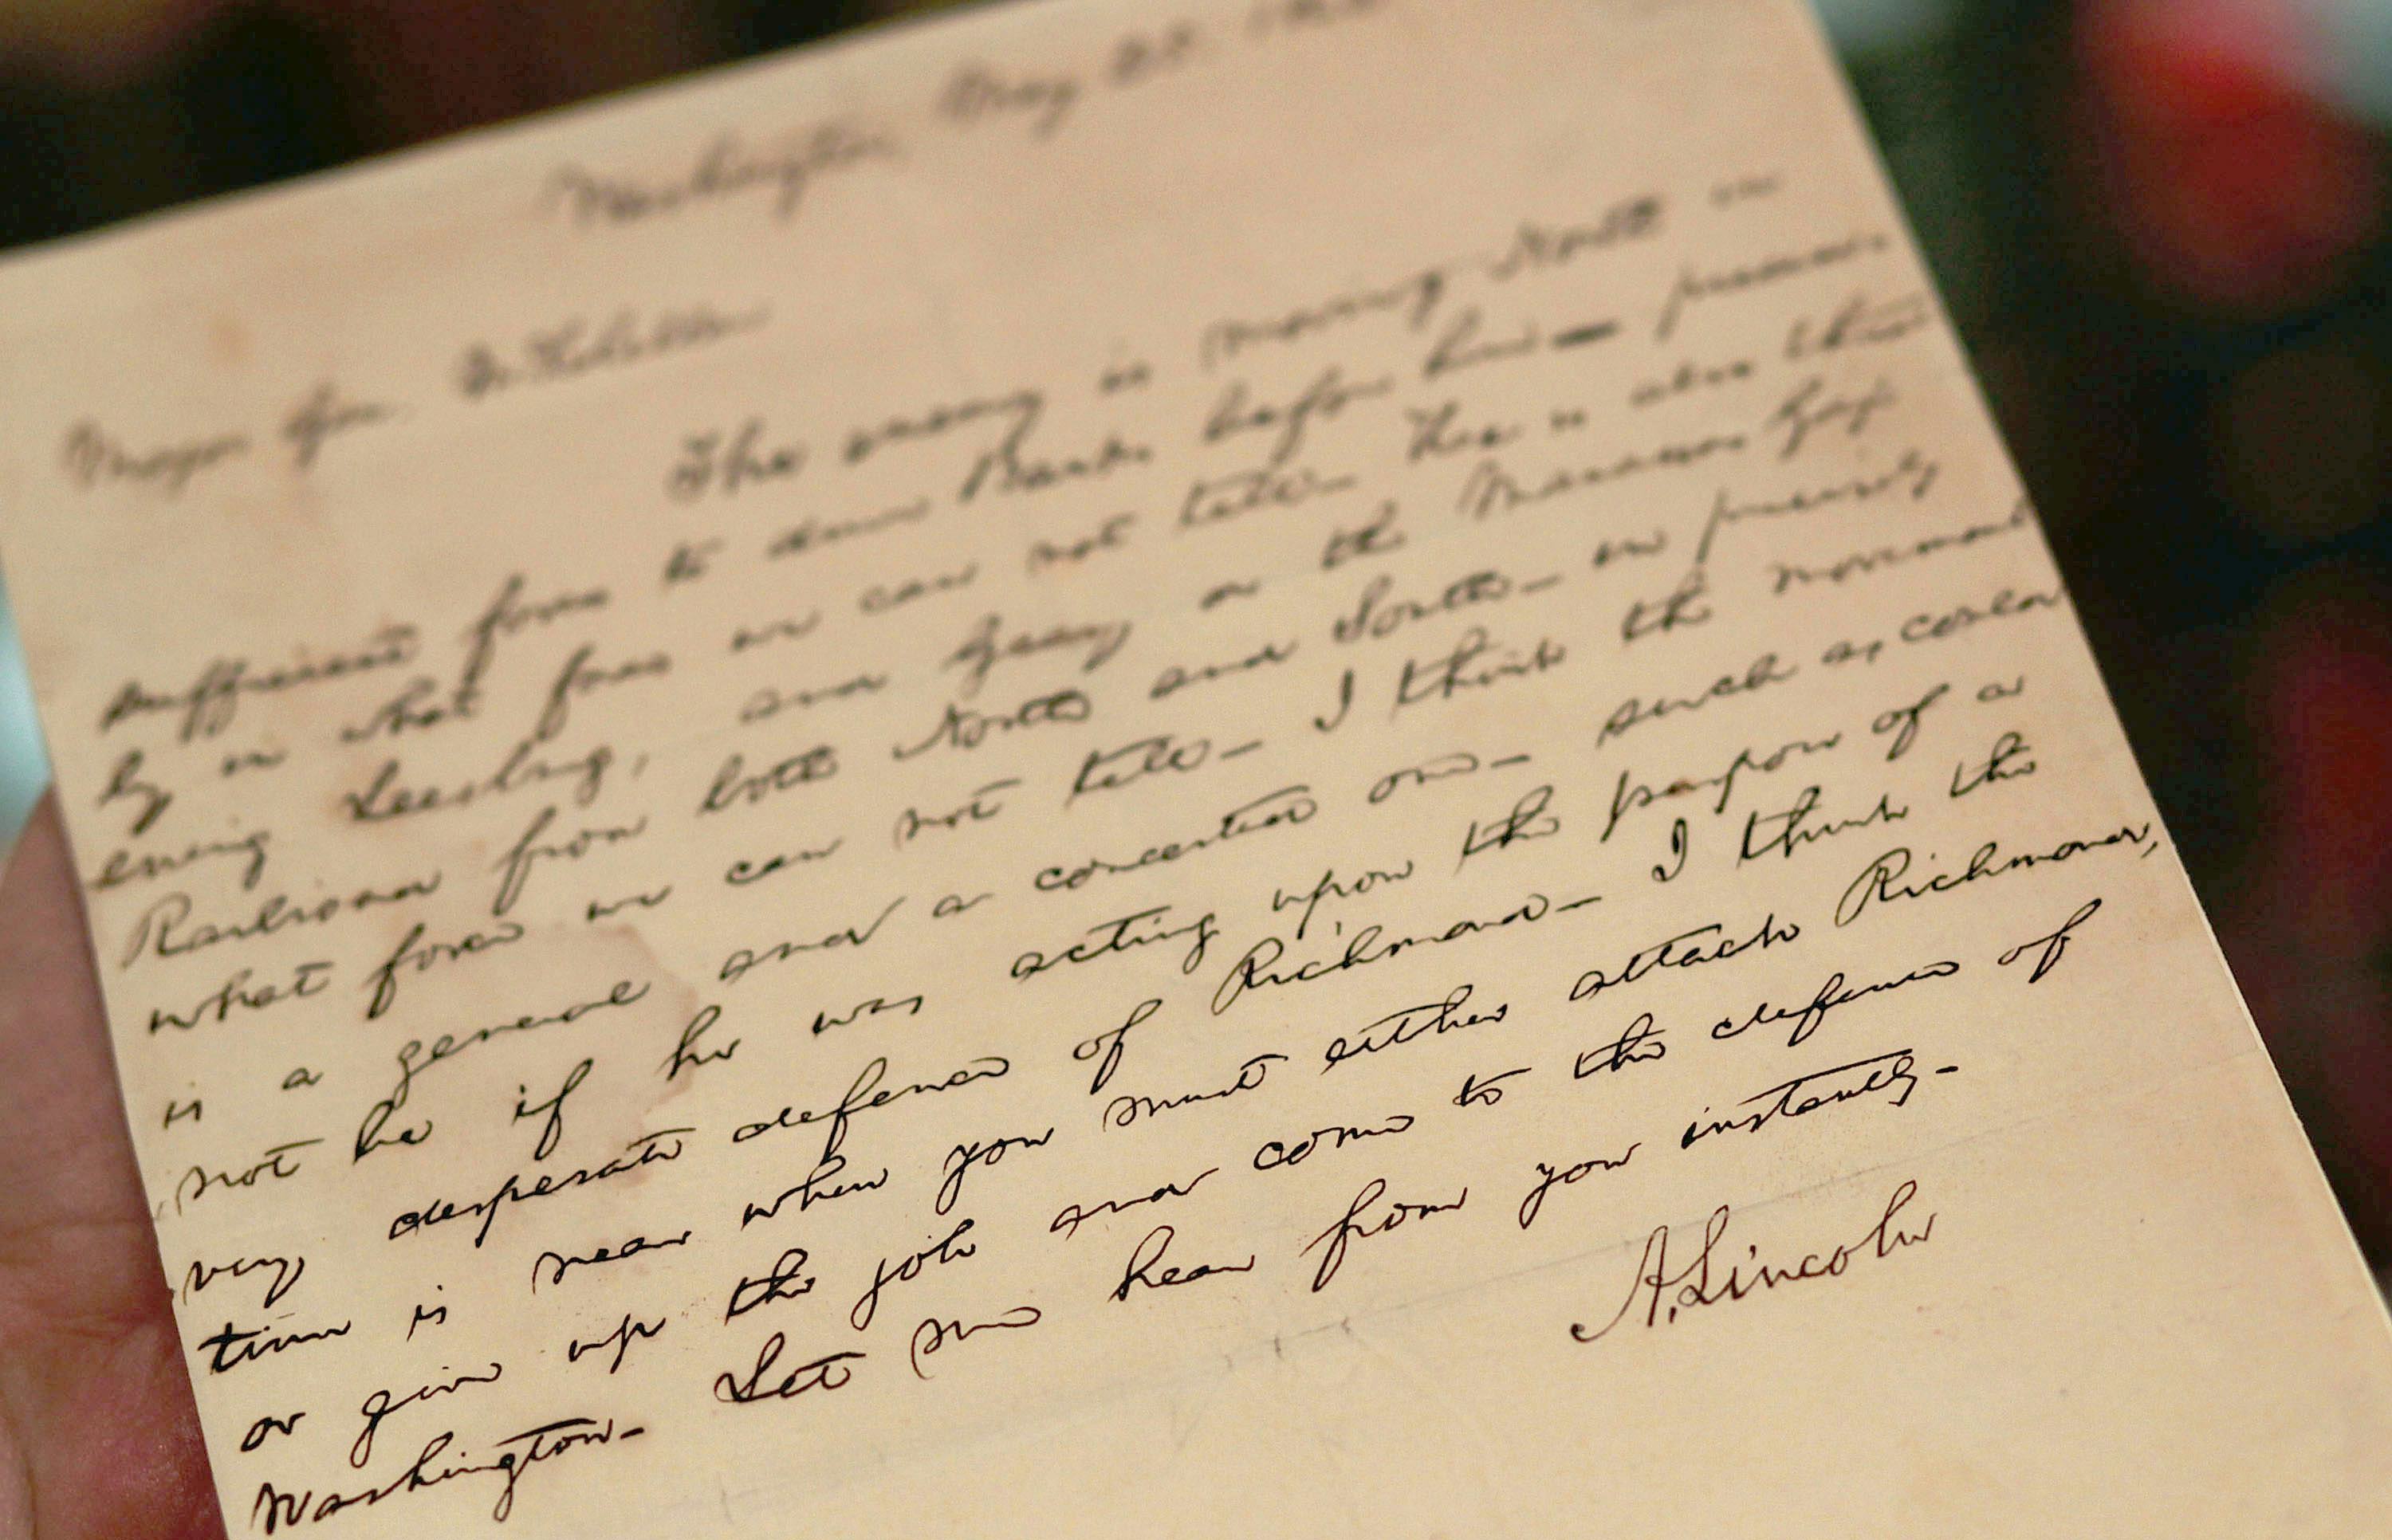 Washington, May 25. 1862
Major Gen. McClellan
The enemy is moving North in
sufficient force to drive Banks before him — precise-
ly in what force we can not tell— He is also threat
ening Leesburg, and Geary on the Manassas Gap
Railroad from both North and South— in precisely
what force we can not tell— I think the movement
is a general and a concerted one— such as could
not be if he was acting upon the purpose of a
very desperate defence of Richmond— I think the
time is near when you must either attack Richmond,
or give up the job and come to the defence of
Washington— Let me hear from you instantly—
A. Lincoln